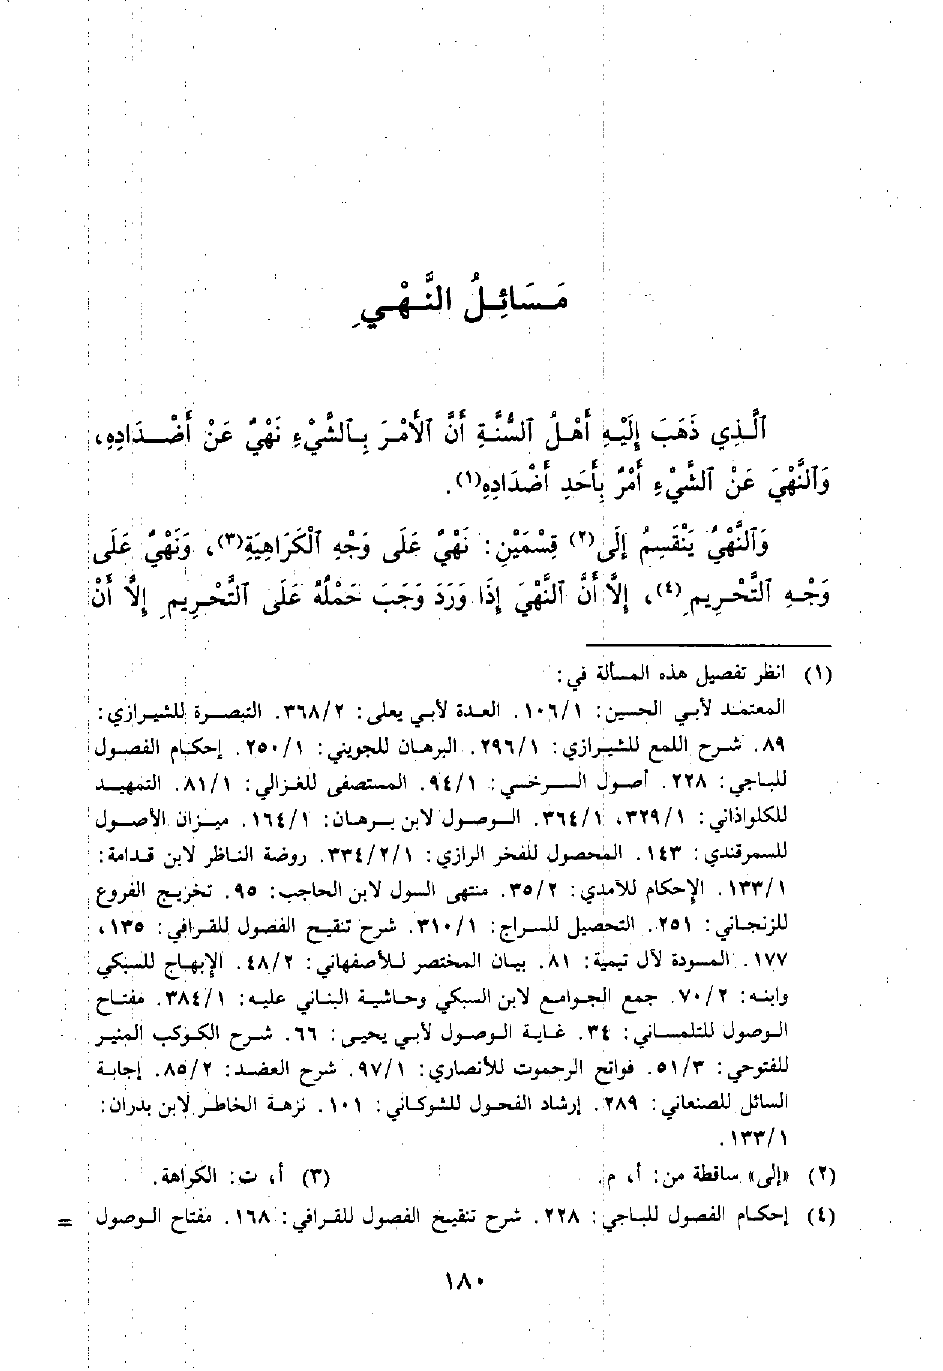 مَسَائِلُ النَّهْيِ
ٱلَّذِي ذَهَبَ إِلَيْهِ أَهْلُ ٱلسُّنَّةِ أَنَّ ٱلْأَمْرَ بِٱلشَّيْءِ نَهْيٌ عَنْ أَضْدَادِهِ،
وَٱلنَّهْيَ عَنْ ٱلشَّيْءِ أَمْرٌ بِأَحَدِ أَضْدَادِهِ(١).
وَٱلنَّهْيُ يَنْقَسِمُ إِلَى(٢) قِسْمَيْنِ: نَهْيٌ عَلَى وَجْهِ ٱلْكَرَاهِيَةِ(٣)، وَنَهْيٌ عَلَى
وَجْهِ ٱلتَّحْرِيمِ(٤)، إِلاَّ أَنَّ ٱلنَّهْيَ إِذَا وَرَدَ وَجَبَ حَمْلُهُ عَلَى ٱلتَّحْرِيمِ إِلاَّ أَنْ
(١) انظر تفصيل هذه المسألة في:
المعتمد لأبي الحسين: ١٠٦/١. العدة لأبي يعلى: ٣٦٨/٢. التبصرة للشيرازي:
٨٩. شرح اللمع للشيرازي: ٢٩٦/١. البرهان للجويني: ٢٥٠/١. إحكام الفصول
للباجي: ٢٢٨. أصول السرخسي: ٩٤/١. المستصفى للغزالي: ٨١/١. التمهيد
للكلوذاني: ٣٢٩/١، ٣٦٤/١. الوصول لابن برهان: ١٦٤/١. ميزان الأصول
للسمرقندي: ١٤٣. المحصول للفخر الرازي: ٣٣٤/٢/١. روضة الناظر لابن قدامة:
١٣٣/١. الإحكام للآمدي: ٣٥/٢. منتهى السول لابن الحاجب: ٩٥. تخريج الفروع
للزنجاني: ٢٥١. التحصيل للسراج: ٣١٠/١. شرح تنقيح الفصول للقرافي: ١٣٥،
١٧٧. المسودة لآل تيمية: ٨١. بيان المختصر للأصفهاني: ٤٨/٢. الإبهاج للسبكي
وابنه: ٧٠/٢. جمع الجوامع لابن السبكي وحاشية البناني عليه: ٣٨٤/١. مفتاح
الوصول للتلمساني: ٣٤. غاية الوصول لأبي يحيى: ٦٦. شرح الكوكب المنير
للفتوحي: ٥١/٣. فواتح الرحموت للأنصاري: ٩٧/١. شرح العضد: ٨٥/٢. إجابة
السائل للصنعاني: ٢٨٩. إرشاد الفحول للشوكاني: ١٠١. نزهة الخاطر لابن بدران:
١٣٣/١.
(٢) «إلى» ساقطة من: أ، م. (٣) أ، ت: الكراهة.
(٤) إحكام الفصول للباجي: ٢٢٨. شرح تنقيح الفصول للقرافي: ١٦٨. مفتاح الوصول =
١٨٠